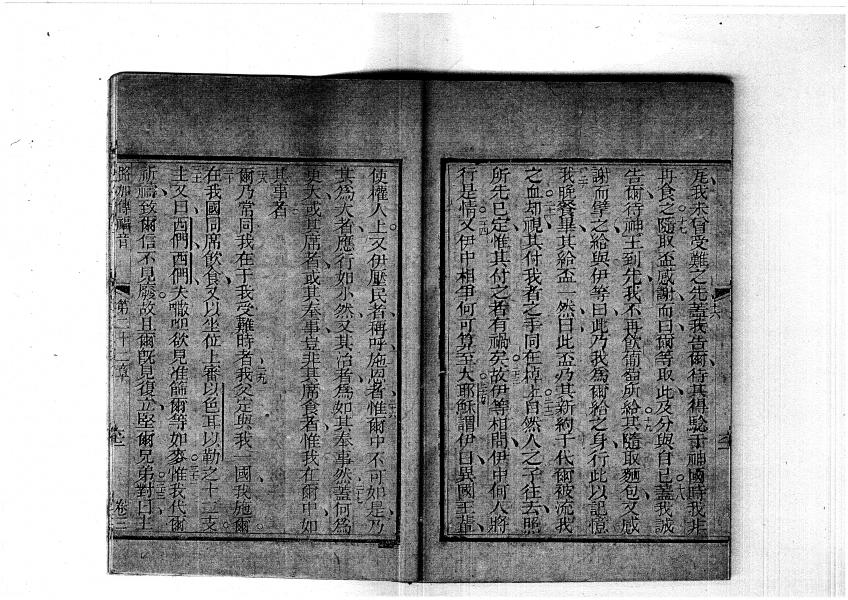 爾我未曾受難之先蓋我告爾待其得騐于神國時我非
再食之隨取盃感謝而曰爾等取此及分與自己蓋我誠
告爾待神王到先我不再飲葡萄所給其隨取麵包又感
謝而擘之給與伊等曰此乃我為爾給之身行此以記憶
我晚餐畢其給盃 然曰此盃乃其新約于代爾被流我
之血却視其付我者之手同在棹上自然人之子往去照
所先已定惟其付之者有禍矣故伊等相問伊中何人將
行是情又伊中相爭何可算至大耶穌謂伊曰異國王
使權人上又伊壓民者稱呼施恩者惟爾中不可如是乃
其為大者應行如小然又其治者為如其奉事然蓋何為
更大或其席者或其奉事豈非其席食者惟我在爾中如
其事者
爾乃當同我在于我受難時者我爰定與我一國我施爾
在我國同席飲食又以坐位上審以色耳以勒之十二支
主又曰西們西們夫㘔呾欲見准篩爾等如麥惟我代爾
祈禱致爾信不見廢故且爾既見復立堅爾兄弟對曰主
路加傳福音 第二十二章 卷三